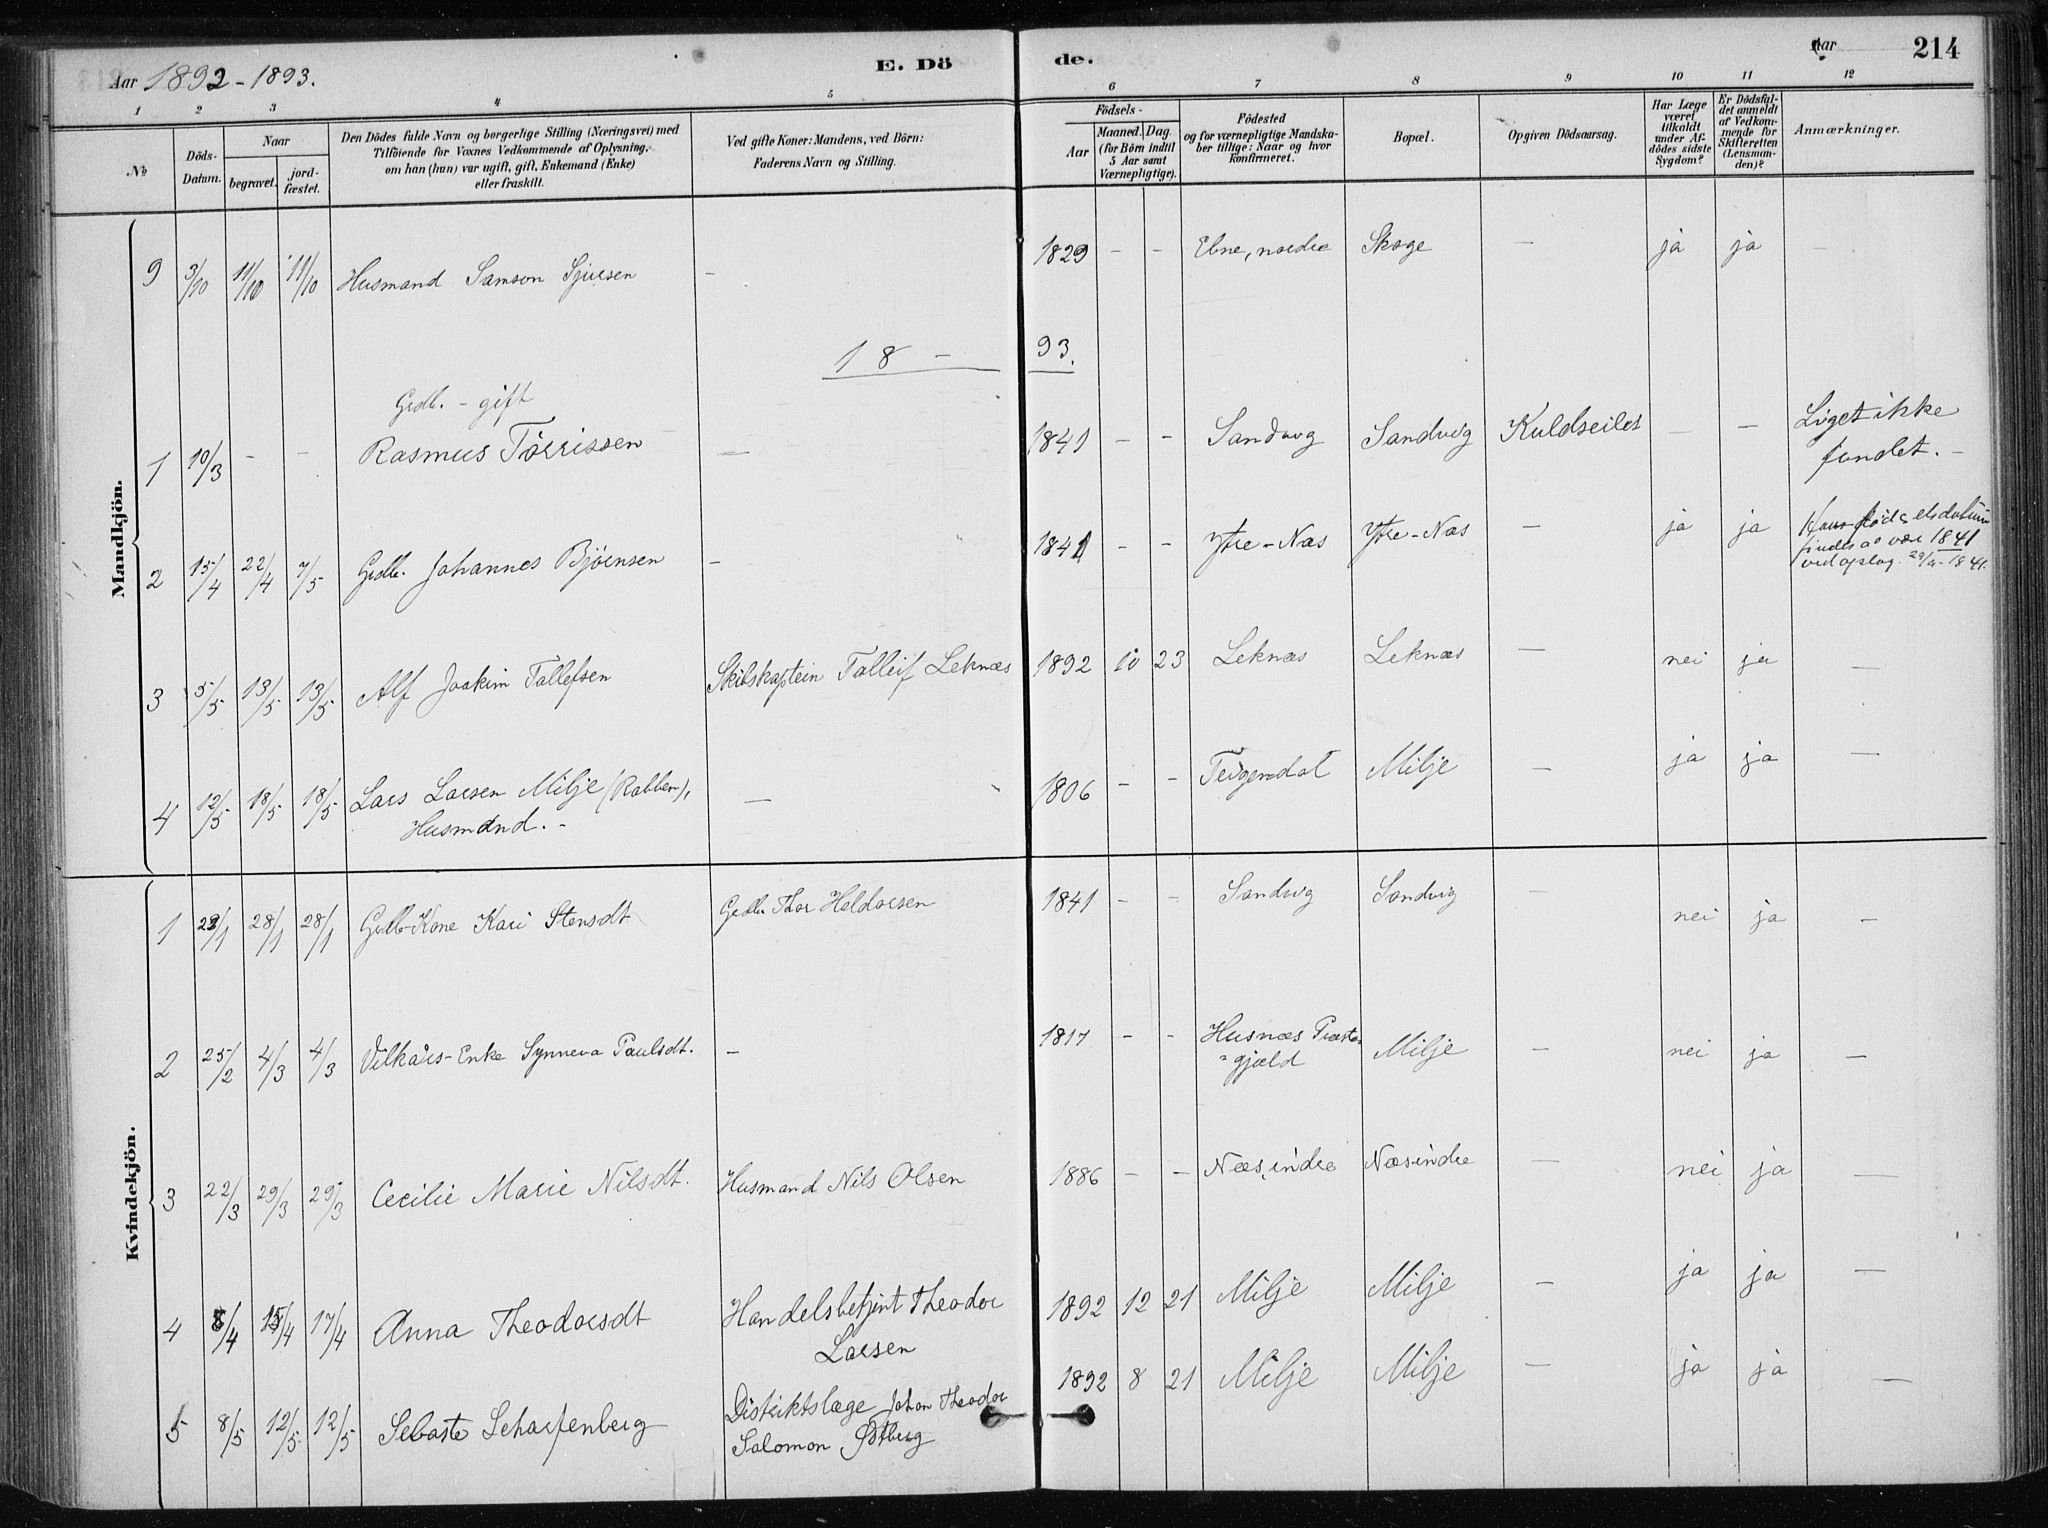 Aar 1892-1893.
E. Dö
de.
Aar
214
1 2 3 4 5 6 7 8 9 10 11 12
№
Döds-
Datum.
Naar
begravet.
jord-
fæstet.
Den Dödes fulde Navn og borgerlige Stilling (Næringsvei) med
Tilföiende for Voxnes Vedkommende af Oplysning,
om han (hun) var ugift, gift, Enkemand (Enke)
eller fraskilt.
Ved gifte Koner: Mandens, ved Börn:
Faderens Navn og Stilling.
Födsels-
Aar
Maaned. Dag.
(for Börn indtil
5 Aar samt
Værnepligtige).
Födested
og for værnepligtige Mandska-
ber tillige: Naar og hvor
konfirmeret.
Bopæl.
Opgiven Dödsaarsag.
Har Læge
været
tilkaldt
under Af-
dödes sidste
Sygdom?
Er Dödsfal-
det anmeldt
af Vedkom-
mende for
Skifteretten
(Lensman-
den)?
Anmærkninger.
Mandkjön.
9 3/10 11/10 11/10 Husmand Samson Sjursen - 1829 - - Ebne, nordre Skoge - ja ja -
18 - 93.
Grdb. - gift
1 10/3 - - Rasmus Tørrissen - 1841 - - Sandvig Sandvig Kuldseilet - - Liget ikke
fundet. -
2 15/4 22/4 7/5 Grdb. Johannes Bjørnsen - 1841 - - Ytre-Næs Ytre-Næs - ja ja Hans fødselsdatum
findes at være 1841
ved opslag. 1841.
3 5/5 13/5 13/5 Alf Joakim Tollefsen Skibskaptein Tolleif Leknæs 1892 10 23 Leknæs Leknæs - nei ja -
4 12/5 18/5 18/5 Lars Larsen Milje (Rabben),
Husmand. -
- 1806 - - Teigendal Milje - ja ja -
Kvindekjön.
1 23/1 28/1 28/1 Grdb-Kone Kari Stensdt Grdbr Thor Haldorsen 1841 - - Sandvig Sandvig - nei ja -
2 25/2 4/3 4/3 Vilkårs-Enke Synneva Paulsdt. - 1817 - - Husnæs Præste-
gjæld
Milje - nei ja -
3 22/3 29/3 29/3 Cecilie Marie Nilsdt. Husmand Nils Olsen 1886 - - Næs, indre Næsindre - nei ja -
4 8/4 15/4 17/4 Anna Theodorsdt Handelsbetjent Theodor
Larsen
1892 12 21 Milje Milje - ja ja -
5 8/5 12/5 12/5 Sebaste Scharfenberg Distriktslæge Johan Theodor
Salomon Østberg
1892 8 21 Milje Milje - ja ja -